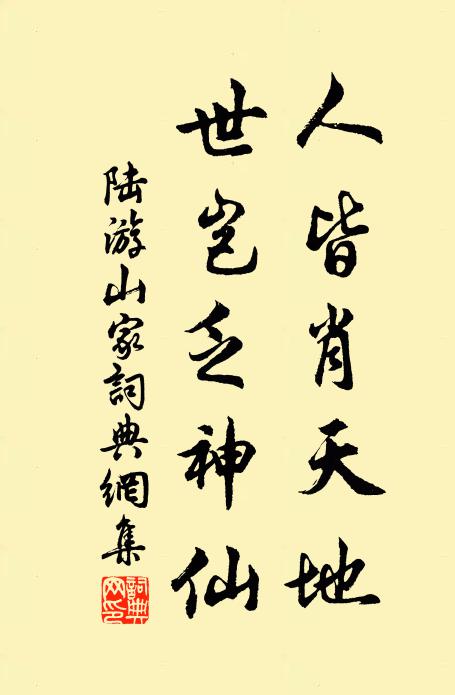 人皆肖天地
世岂乏神仙
陆游山家詞典網集
詞典网印